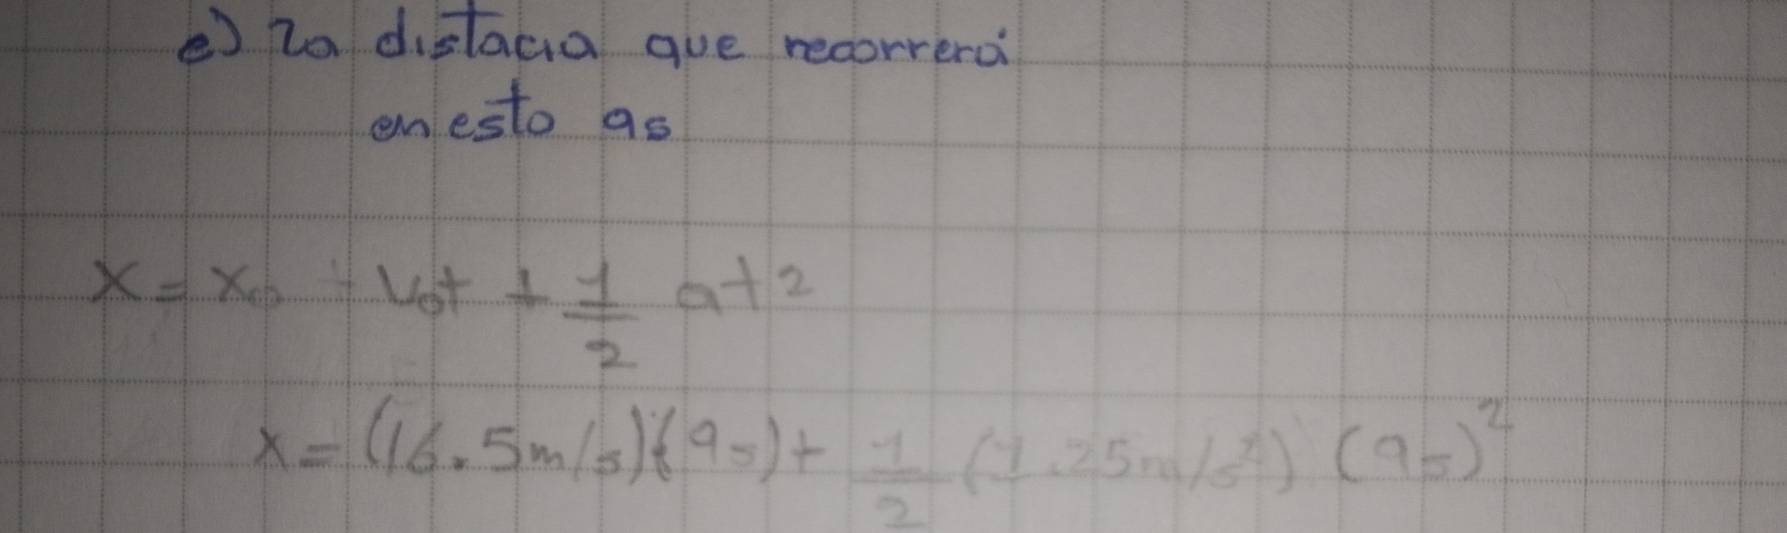 e) La distacia que recorrerá
en esto 9s
x = x₀ + v₀t + 1/2 at²
x = (16.5m/s)(9s) + 1/2 (1.25m/s²) (9s)²